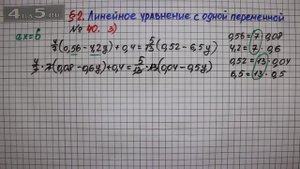 4you5.ru
§2. Линейное уравнение с одной переменной
№ 40. 3)
ax=b
4/7(0,56-4,2y)+0,4=5/13(0,52-6,5y)
4/7·7(0,08-0,6y)+0,4=5/13·13(0,04-0,5y)
0,56=7·0,08
4,2=7·0,6
0,52=13·0,04
6,5=13·0,5